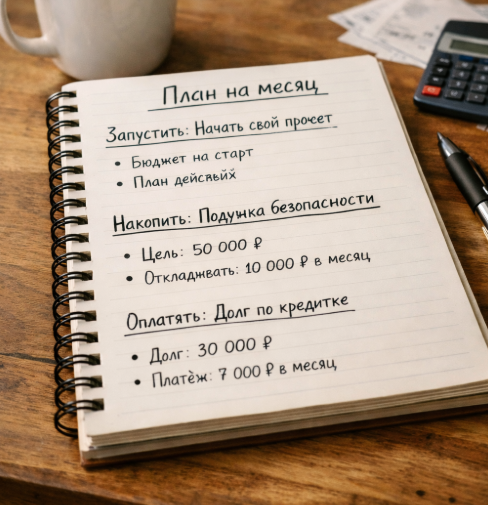 План на месяц
Запустить: Начать свой прочет
• Бюджет на старт
• План дейсвьйх
Накопить: Подушка безопасности
• Цель: 50 000 ₽
• Откладжвать: 10 000 ₽ в месяц
Оплатять: Долг по кредитке
• Долг: 30 000 ₽
• Платѐж: 7 000 ₽ в месяц